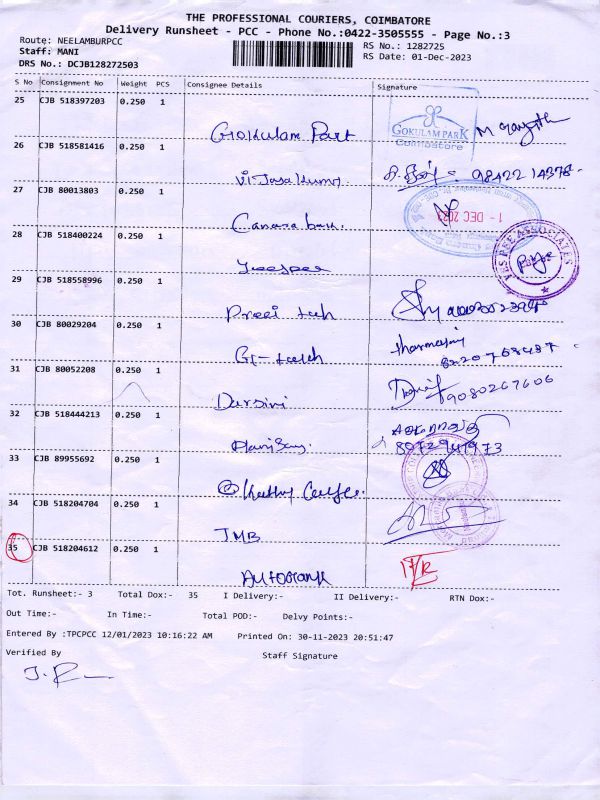 THE PROFESSIONAL COURIERS, COIMBATORE
Delivery Runsheet - PCC - Phone No.:0422-3505555 - Page No.:3
Route: NEELAMBURPCC
RS No.: 1282725
Staff: MANI
RS Date: 01-Dec-2023
DRS No.: DCJB128272503
S No Consignment No Weight PCS Consignee Details Signature
25 CJB 518397203 0.250 1
Gokulam Park
GOKULAM PARK
Coimbatore
26 CJB 518581416 0.250 1
Vijayakumar 98422 14378
27 CJB 80013803 0.250 1
Canara bank.
1 - DEC 202
28 CJB 518400224 0.250 1
YES PEE ASSOCIATES
29 CJB 518558996 0.250 1
Preei tech
30 CJB 80029204 0.250 1
G-tech
8220768487
31 CJB 80052208 0.250 1
Darsini 9080267606
32 CJB 518444213 0.250 1
8072941973
33 CJB 89955692 0.250 1
34 CJB 518204704 0.250 1
TMB
35 CJB 518204612 0.250 1
Tot. Runsheet:- 3 Total Dox:- 35 I Delivery:- II Delivery:- RTN Dox:-
Out Time:- In Time:- Total POD:- Delvy Points:-
Entered By :TPCPCC 12/01/2023 10:16:22 AM Printed On: 30-11-2023 20:51:47
Verified By Staff Signature